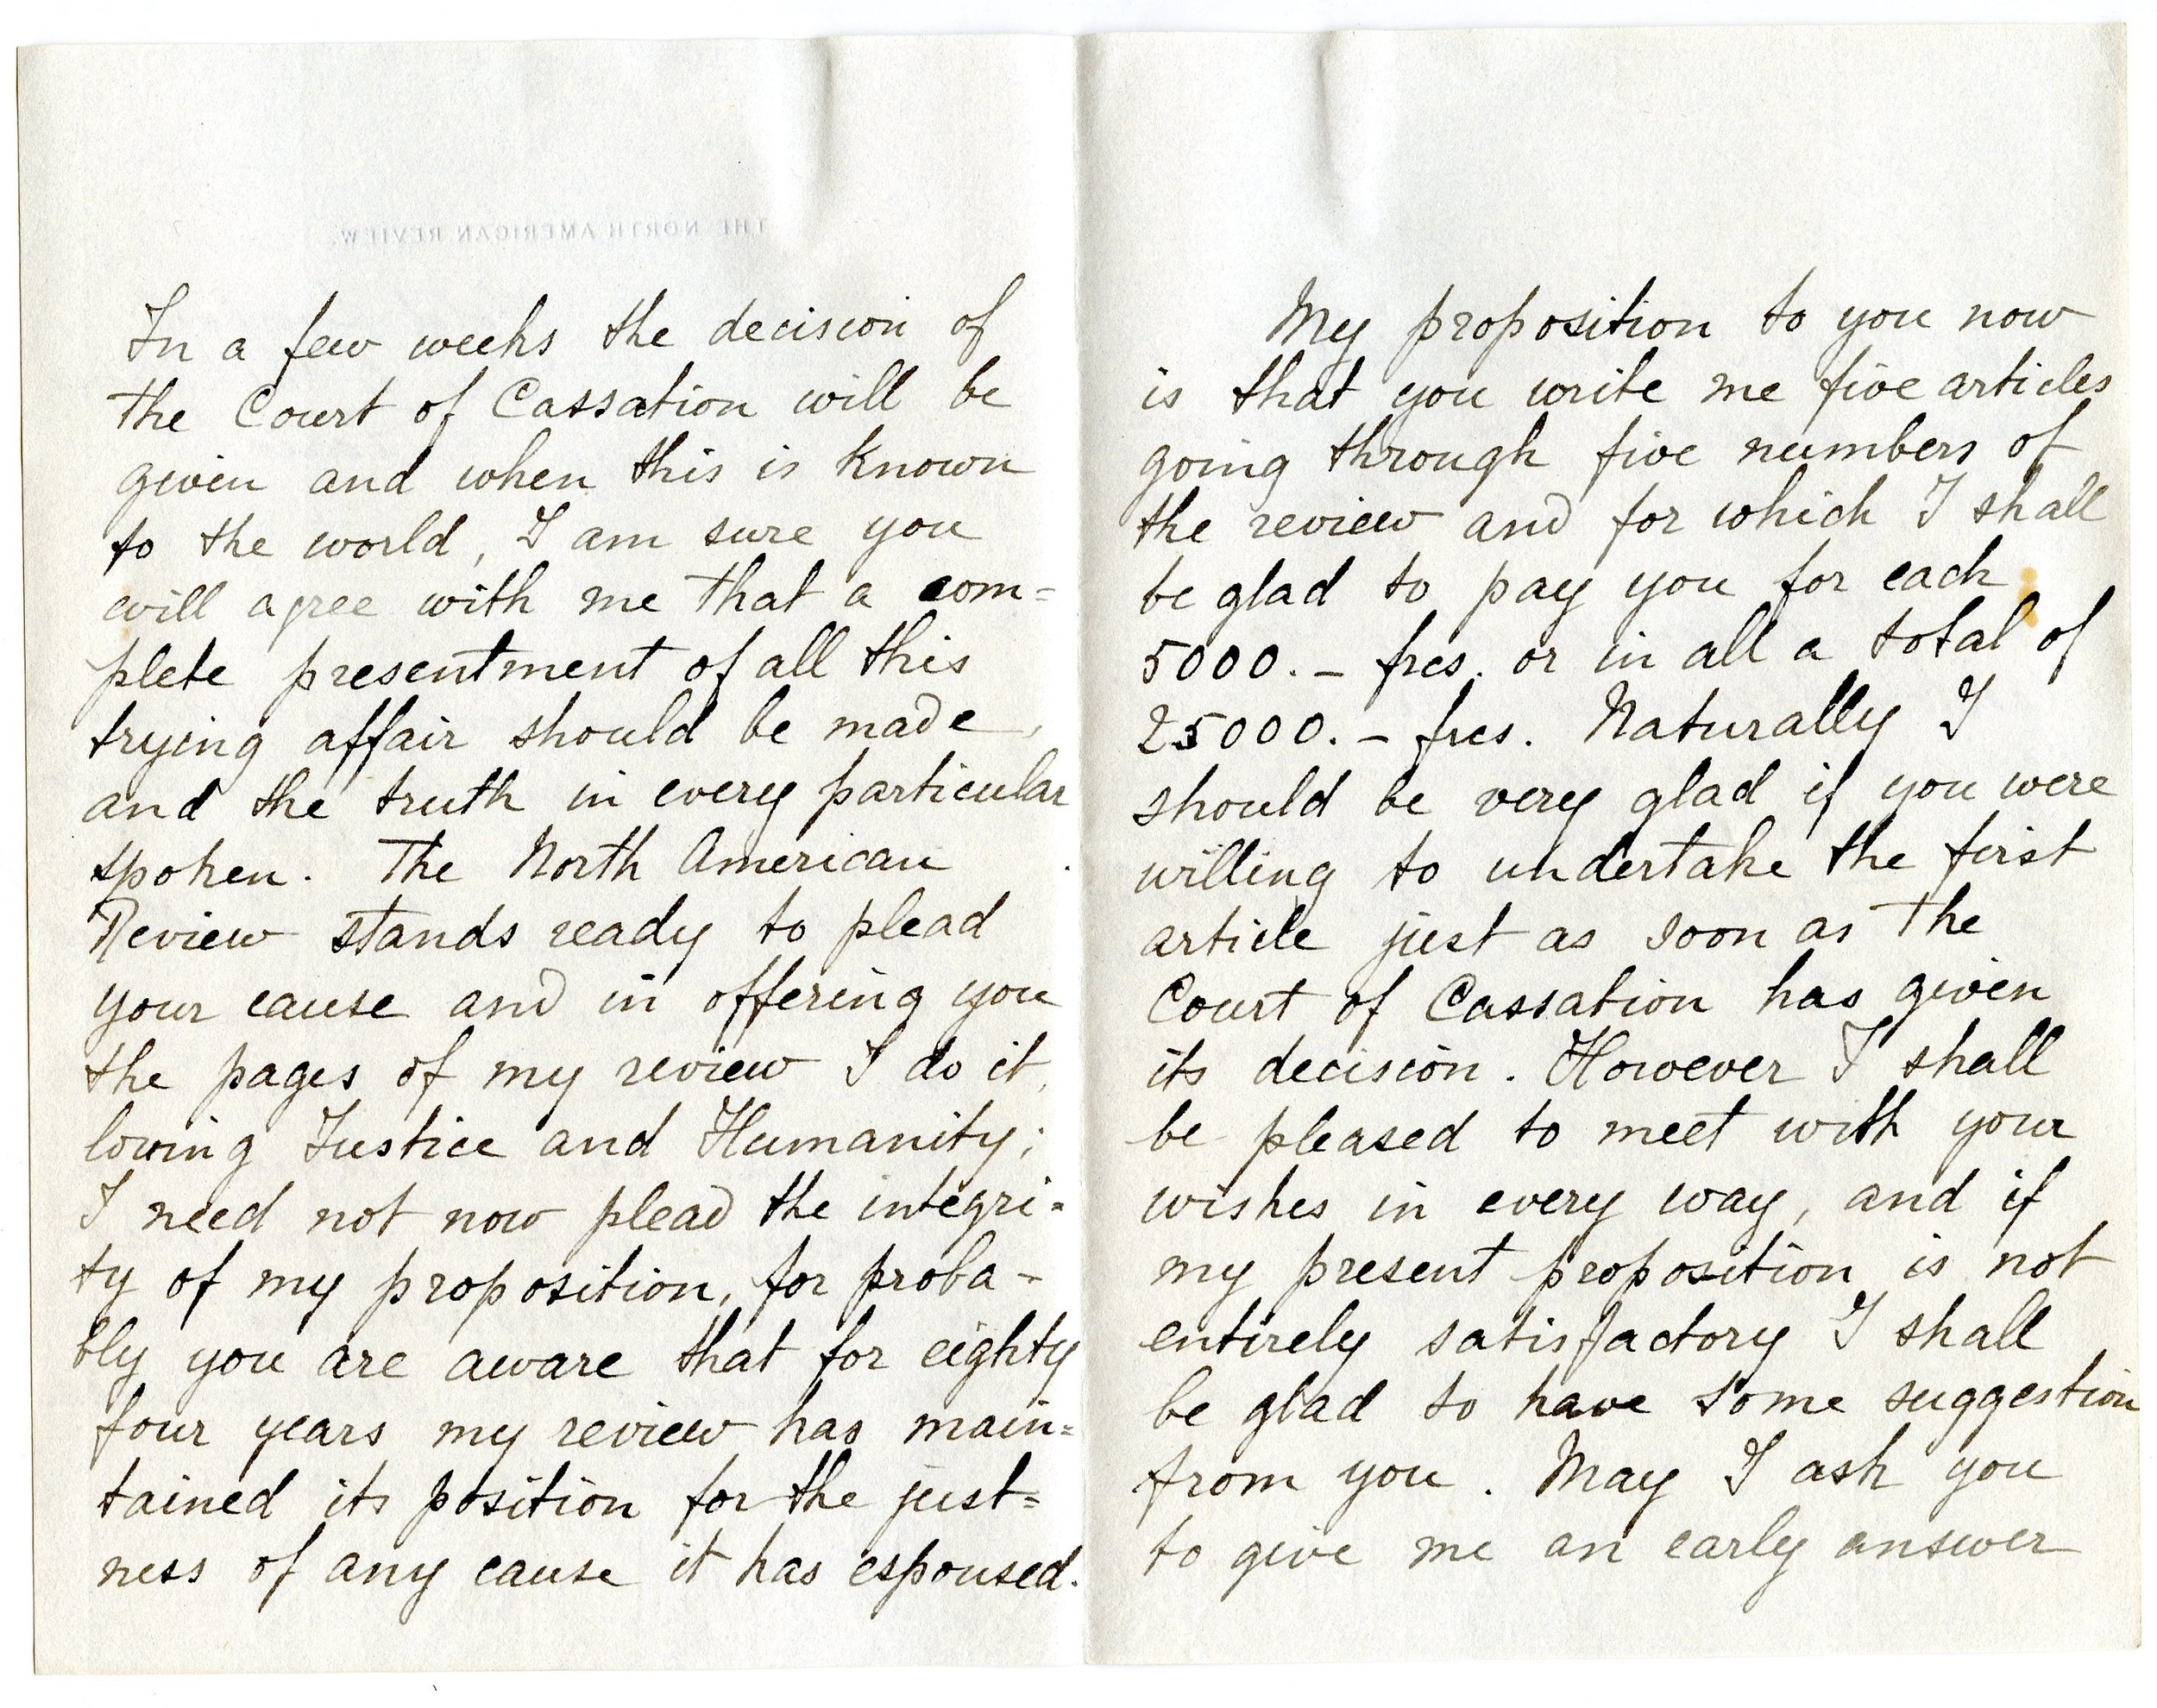 THE NORTH AMERICAN REVIEW.
In a few weeks the decision of
the Court of Cassation will be
given and when this is known
to the world, I am sure you
will agree with me that a com=
plete presentment of all this
trying affair should be made,
and the truth in every particular
spoken. The North American
Review stands ready to plead
your cause and in offering you
the pages of my review I do it,
loving Justice and Humanity;
I need not now plead the integri=
ty of my proposition, for proba-
bly you are aware that for eighty
four years my review has main=
tained its position for the just=
ness of any cause it has espoused.
My proposition to you now
is that you write me five articles
going through five numbers of
the review and for which I shall
be glad to pay you for each
5000.- frcs. or in all a total of
25000.- frcs. Naturally I
should be very glad if you were
willing to undertake the first
article just as soon as the
Court of Cassation has given
its decision. However I shall
be pleased to meet with your
wishes in every way, and if
my present proposition is not
entirely satisfactory I shall
be glad to have some suggestion
from you. May I ask you
to give me an early answer